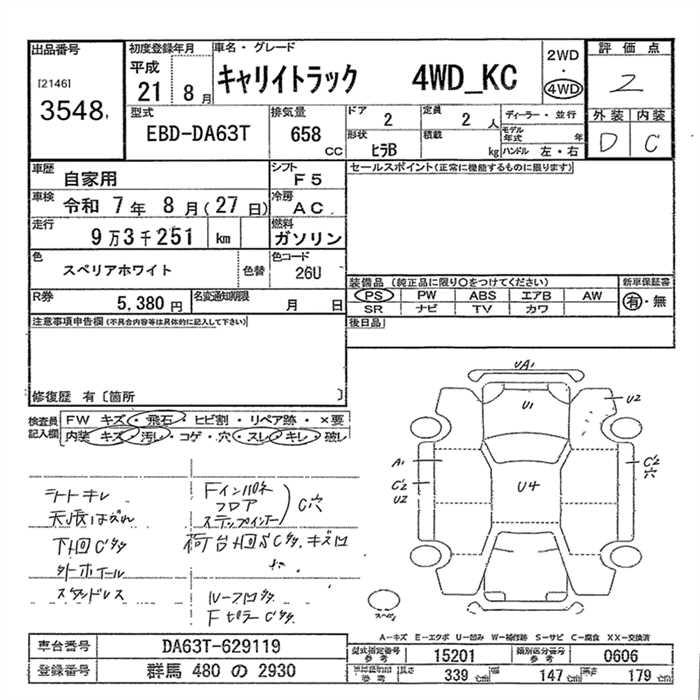 出品番号
[2146]
3548
初度登録年月
平成
21 8月
車名・グレード
キャリイトラック 4WD_KC
2WD
・
4WD
評価点
2
外装 内装
D C
型式
EBD-DA63T
排気量
658
CC
ドア
2
定員
2 人
形状
ヒラB
積載
kg
ディーラー・並行
モデル年式 年
ハンドル 左・右
車歴
自家用
シフト
F5
セールスポイント(正常に機能するものに限ります)
車検
令和 7年 8月(27日)
冷房
AC
走行
9万3千251 km
燃料
ガソリン
色
スペリアホワイト
色替
色コード
26U
装備品(純正品に限り○をつけてください)
PS PW ABS エアB AW
SR ナビ TV カワ
新車保証書
有・無
R券
5,380円
名変通知期限
月 日
後日品
注意事項申告欄(不具合内容等は具体的に記入して下さい)
修復歴 有〔箇所 〕
検査員記入欄
FW キズ・飛石・ヒビ割・リペア跡・×要
内装 キズ・汚レ・コゲ・穴・スレ・キレ・破レ
シートキレ
天張はがれ
下回Cサタ
外ホイール
スタッドレス
Fインパネ
フロア
ステップインナー
C穴
荷台
Cサタ、キズ凹
Fピラー Cサタ
UA1
U1
U2
A1
C2
U2
U4
C2
穴
スペア
A-キズ E-エクボ U-凹み W-補修跡 S-サビ C-腐食 XX-交換済
車台番号
DA63T-629119
型式指定番号
参考
15201
類別区分番号
参考
0606
登録番号
群馬 480 の 2930
参考
長さ
339 cm
幅
147 cm
高さ
179 cm